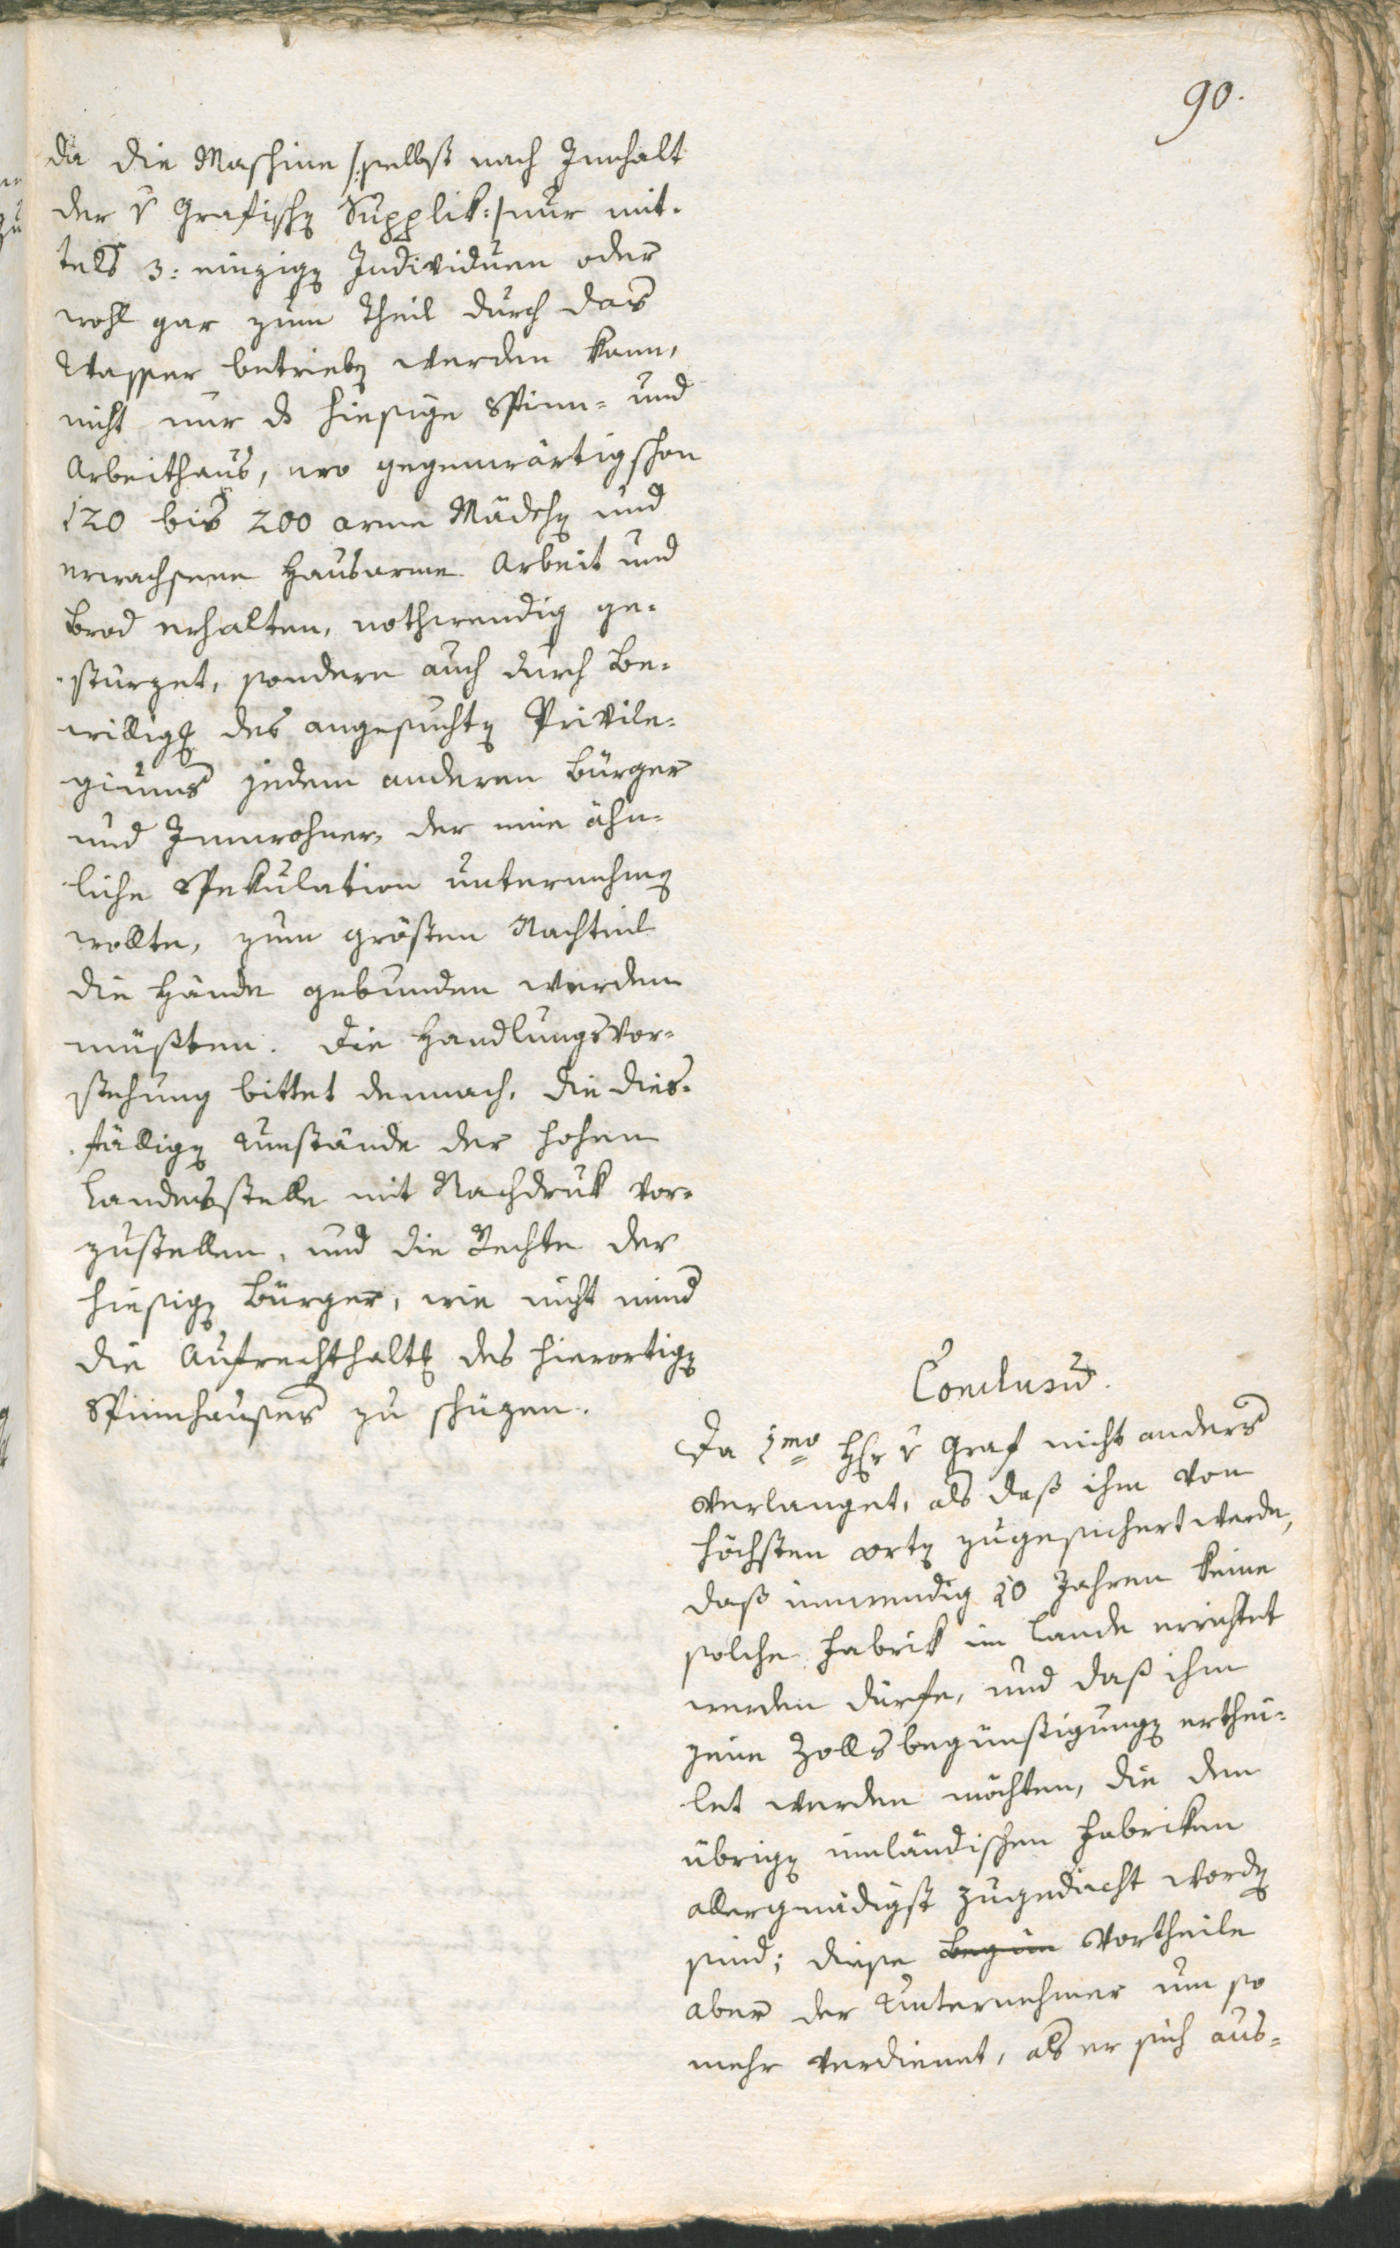 90.
da die Maschine /:selbst nach Innhalt
der v Grafischen Supplik:/ nur mit-
tels 3: einzigen Individuen oder
wohl gar zum Theil durch das
Wasser betrieben werden kann,
nicht nur ds hiesige Spinn- und
Arbeithaus, wo gegenwärtig schon
120 bis 200 arme Mädchen und
erwachsene Hausarme Arbeit und
Brod erhalten, nothwendig ge-
stürzet, sondern auch durch Be-
willigung des angesuchten Privile-
giums jedem anderen Bürger
und Innwohner, der eine ähn-
liche Spekulation unternehmen
wollte, zum grösten Nachteil
die Hände gebunden werden
müßten. Die Handlungsvor-
stehung bittet demnach, die dies-
fälligen Umstände der hohen
Landesstelle mit Nachdruk vor-
zustellen, und die Rechte der
hiesigen Bürger, wie nicht mind
die Aufrechthaltung des hierortigen
Spinnhauses zu schüzen.
Conclusum.
Da 1mo Hr v Graf nicht anders
verlanget, als daß ihm von
höchsten Orten zugesichert werde,
daß innwendig 10 Jahren keine
solche Fabrik im Lande errichtet
werden dürfe, und daß ihm
jene Zollsbegünstigungen erthei-
let werden möchten, die den
übrigen innländischen Fabriken
allergnädigst zugedacht worden
sind; diese Begün Vortheile
aber der Unternehmer um so
mehr verdienet, als er sich aus-